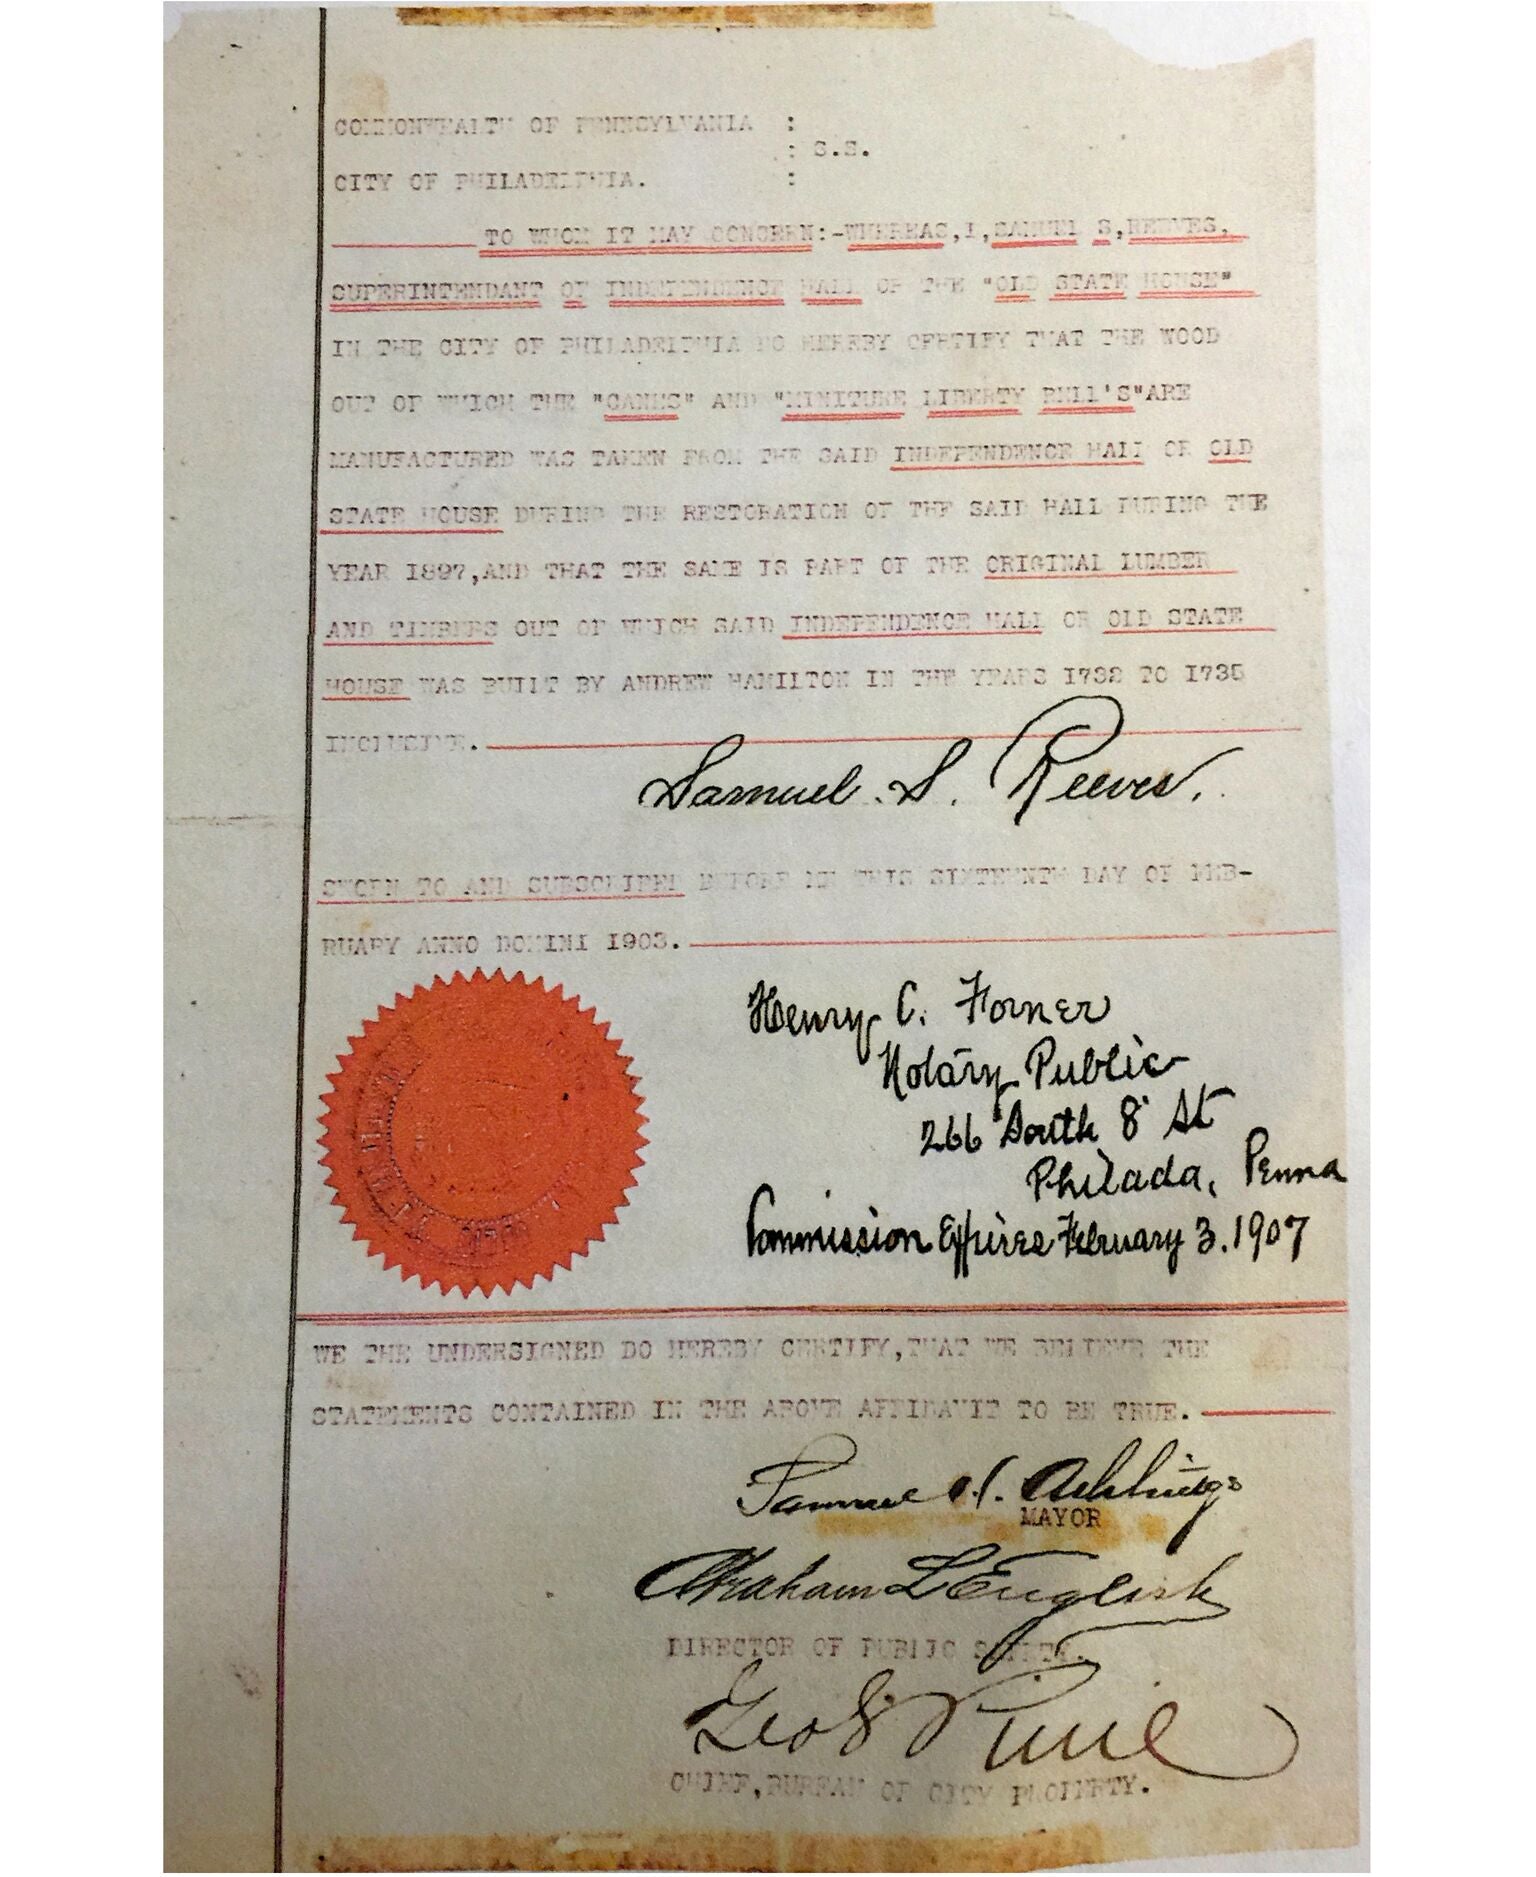 COMMONWEALTH OF PENNSYLVANIA :
: S.S.
CITY OF PHILADELPHIA. :
TO WHOM IT MAY CONCERN:-WHEREAS,I,SAMUEL S,REEVES,
SUPERINTENDANT OF INDEPENDENCE HALL OR THE "OLD STATE HOUSE"
IN THE CITY OF PHILADELPHIA DO HEREBY CERTIFY THAT THE WOOD
OUT OF WHICH THE "CANES" AND "MINITURE LIBERTY BELL'S"ARE
MANUFACTURED WAS TAKEN FROM THE SAID INDEPENDENCE HALL OR OLD
STATE HOUSE DURING THE RESTORATION OF THE SAID HALL DURING THE
YEAR 1897,AND THAT THE SAME IS PART OF THE ORIGINAL LUMBER
AND TIMBERS OUT OF WHICH SAID INDEPENDENCE HALL OR OLD STATE
HOUSE WAS BUILT BY ANDREW HAMILTON IN THE YEARS 1732 TO 1735
INCLUSIVE.
Samuel. S. Reeves.
SWORN TO AND SUBSCRIBED BEFORE ME THIS SIXTEENTH DAY OF FEB-
RUARY ANNO DOMINI 1903.
Henry C. Forner
Notary Public
266 South 8 St
Philada, Penna
Commission Expires February 3. 1907
WE THE UNDERSIGNED DO HEREBY CERTIFY,THAT WE BELIEVE THE
STATEMENTS CONTAINED IN THE ABOVE AFFIDAVIT TO BE TRUE.
Samuel H. Ashbridge
MAYOR
Abraham L English
DIRECTOR OF PUBLIC SAFETY.
Geo
CHIEF,BUREAU OF CITY PROPERTY.